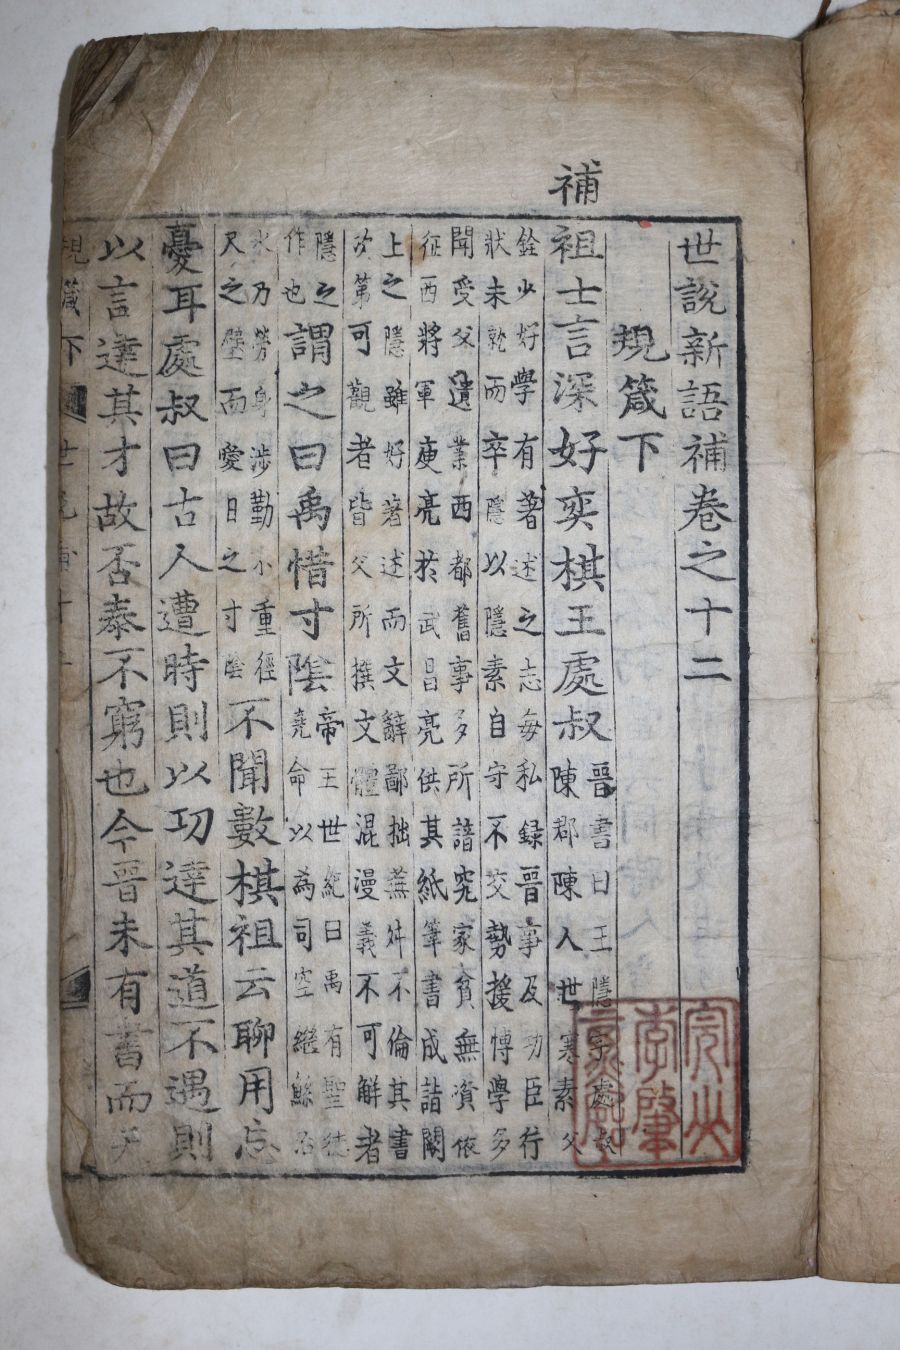 世說新語補卷之十二
規箴下
補
祖士言深好奕棋王處叔晉書曰王隱字處叔陳郡陳人世寒素父
銓少好學有著述之志每私録晉事及功臣行
狀未就而卒隱以隱素自守不交勢援博學多
聞受父遺業西都舊事多所諳究家貧無資依
征西將軍庾亮於武昌亮供其紙筆書成詣闕
上之隱雖好著述而文辭鄙拙蕪舛不倫其書
次第可觀者皆父所撰文體混漫義不可解者
隱之作也謂之曰禹惜寸陰帝王世紀曰禹有聖德堯命以為司空繼鯀治
水乃勞身涉勤不重徑尺之璧而愛日之寸陰不聞數棋祖云聊用忘
憂耳處叔曰古人遭時則以功達其道不遇則
以言達其才故否泰不窮也今晉未有書而天
規箴下 世說補十二